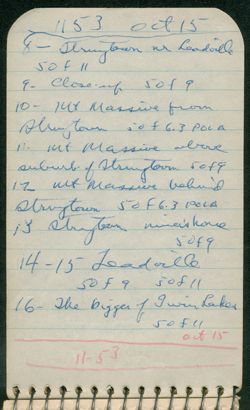 1153 Oct 15
8 - Stringtown nr Leadville
50 f 11
9 - Close-up 50 f 9
10 - Mt Massive from
Stringtown 50 f 6.3 POLA
11 - Mt Massive above
suburb of Stringtown 50 f 9
12 Mt Massive behind
Stringtown 50 f 6.3 POLA
13 Stringtown miner's home
50 f 9
14-15 Leadville
50 f 9 50 f 11
16 - The bigger of Twin Lakes
50 f 11
Oct 15
11-53